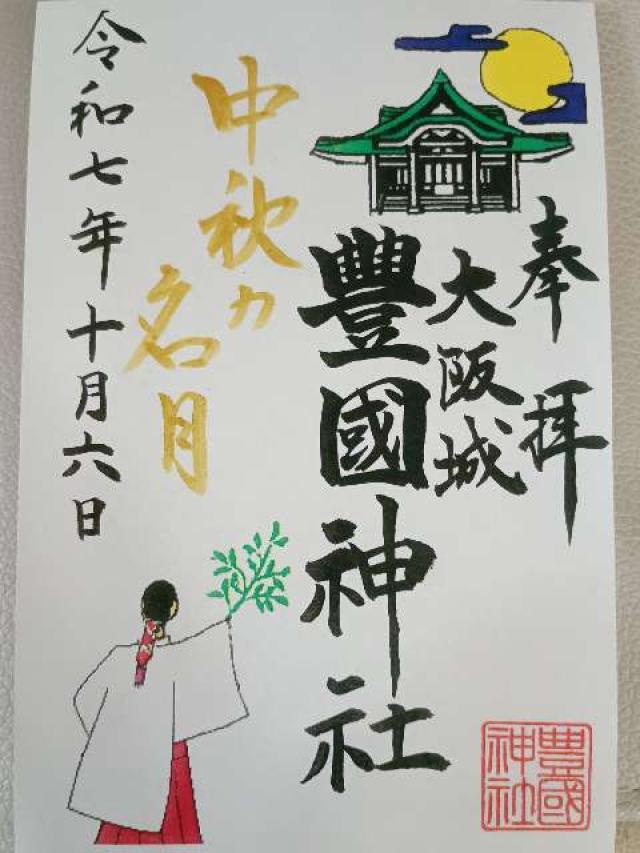 奉拝
大阪城
豐國神社
中秋カ
名月
令和七年十月六日
豊國
神社